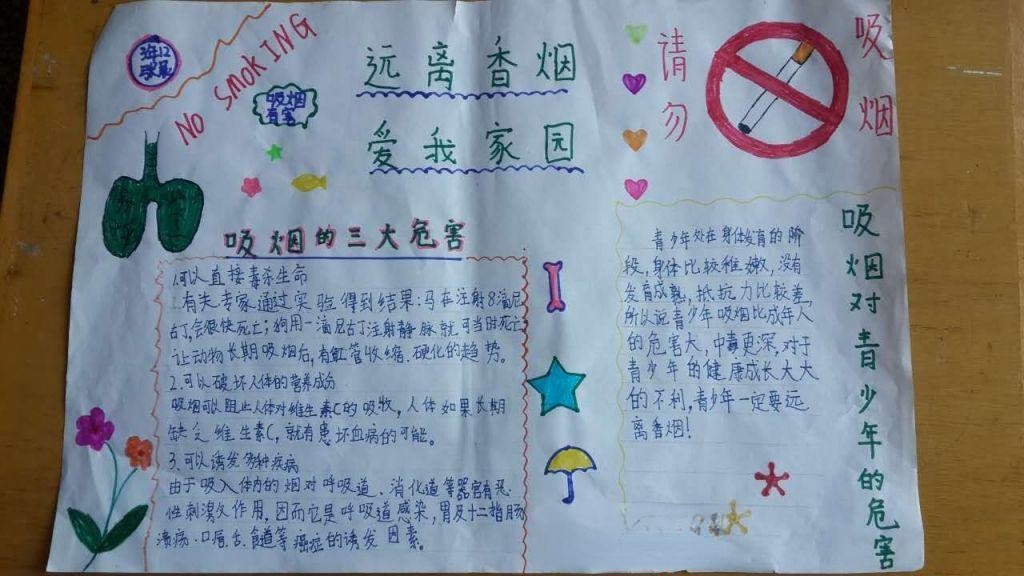 3年12
NO SMOKING
吸烟
有害
远离香烟
爱我家园
请勿
吸烟
吸烟的三大危害
1.可以直接毒杀生命
有关专家通过实验得到结果:马在注射8滴尼
古丁,会很快死亡;狗用一滴尼古丁注射静脉就可当时死亡,
让动物长期吸烟后,有血管收缩、硬化的趋势。
2.可以破坏人体的营养成分
吸烟可以阻止人体对维生素C的吸收,人体如果长期
缺乏维生素C,就有患坏血病的可能。
3.可以诱发多种疾病
由于吸入体内的烟对呼吸道、消化道等器官有恶
性刺激作用,因而它是呼吸道感染,胃及十二指肠
溃疡、口唇、舌、食道等癌症的诱发因素。
吸烟对青少年的危害
青少年处在身体发育的阶
段,身体比较稚嫩,没有
发育成熟,抵抗力比较差,
所以说青少年吸烟比成年人
的危害大,中毒更深,对于
青少年的健康成长大大
的不利,青少年一定要远
离香烟!